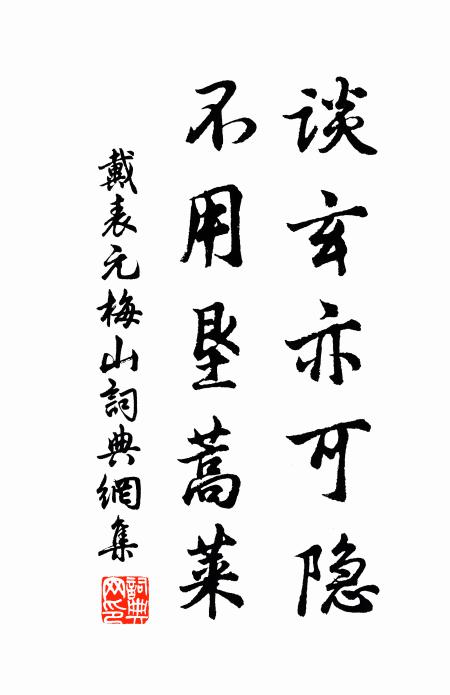 谈玄亦可隐
不用垦蒿莱
戴表元梅山詞典網集
詞典網印